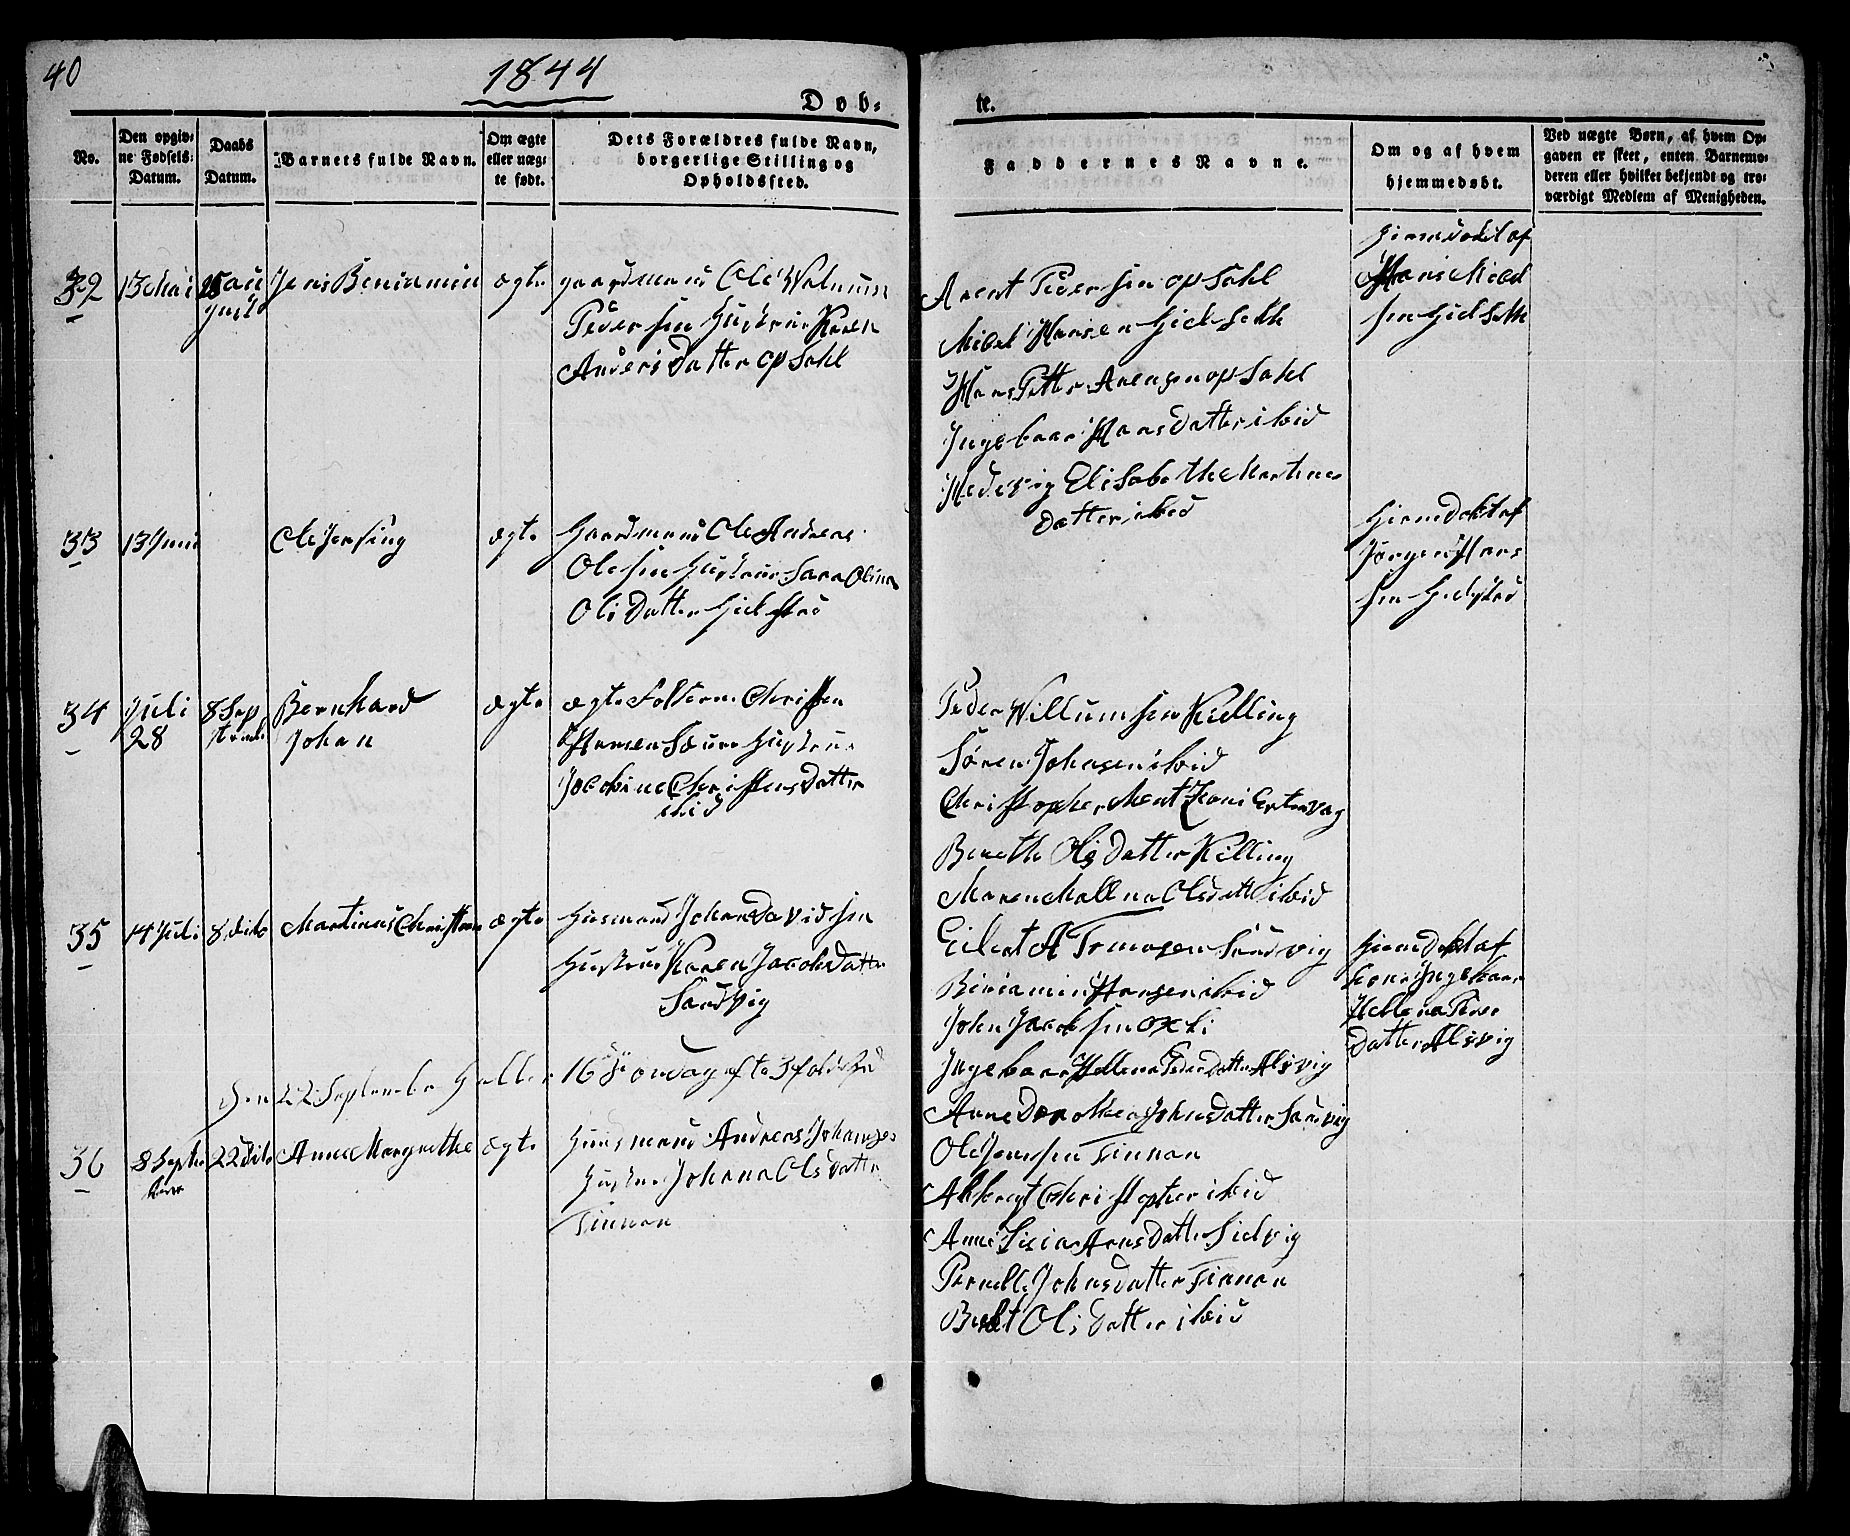 40
1844
Døb-
te.
No.
Den opgiv-
ne Fødsels-
Datum.
Daabs
Datum.
Barnets fulde Navn.
Om ægte
eller uæg-
te født.
Dets Forældres fulde Navn,
borgerlige Stilling og
Opholdssted.
Faddernes Navne.
Om og af hvem
hjemmedøbt.
Ved uægte Børn, af hvem Op-
gaven er skeet, enten Barnemo-
deren eller hvilket bekjendt og tro-
værdigt Medlem af Menigheden.
32
13 Mai
25 au
gust
Jens Beniamin
ægte
gaardmand Ole
Peder sen Hustrue Karen
Anders Datter opsahl
Arent Peder sen opsahl
Mikel Hansen
Hans Petter Arensen opsahl
Ingebaar Hans Datter ibid
Hedevig Elisabethe Martines
Datter ibid
Hiemdøbt af
Hans Mikel
sen
33
13 Juni
Ole Jensing
ægte
Gaardmand Ole Andreas
Ole sen Hustrue Sara Olina
Ols Datter
Hiemdøbt af
Jørgen Hans
sen
34
Juli
28
8 Sep
tembr
Bernhard
Johan
ægte
ægte Folkene Christen
Hansen Hustrue
Jacobine Christens Datter
ibid
Peder Willumsen Kielling
Søren Johnsen ibid
Christopher
Berethe Ols Datter Kielling
Maren Mallena Olsdatt ibid
35
14 Juli
8 dito
Martinus Christian
ægte
Husmand Johan David sen
Hustrue Karen Jacobs Datter
Sandvig
Eilert A Tomasen Sandvig
Biniamin Hansen ibid
John Jacob sen
Ingebaar Hellena Peder Datter Alsvig
Anne Dorothea Johns Datter Sandvig
Hiemdøbt af
Kone Ingebaar
Hellena Peder
Datter Alsvig
Den 22 September
16 Søndag efter 3foldighed
36
8 Septem
ber
22 dito
Anne Margrethe
ægte
Huusmand Andreas Johanses
Hustru Johana Ols Datter
Finnan
Ole Jensen Finnan
Albregt Christopher ibid
Anne Arns Datter
Pernelle Johnsdatter Finnan
Beret Ols Datter ibid